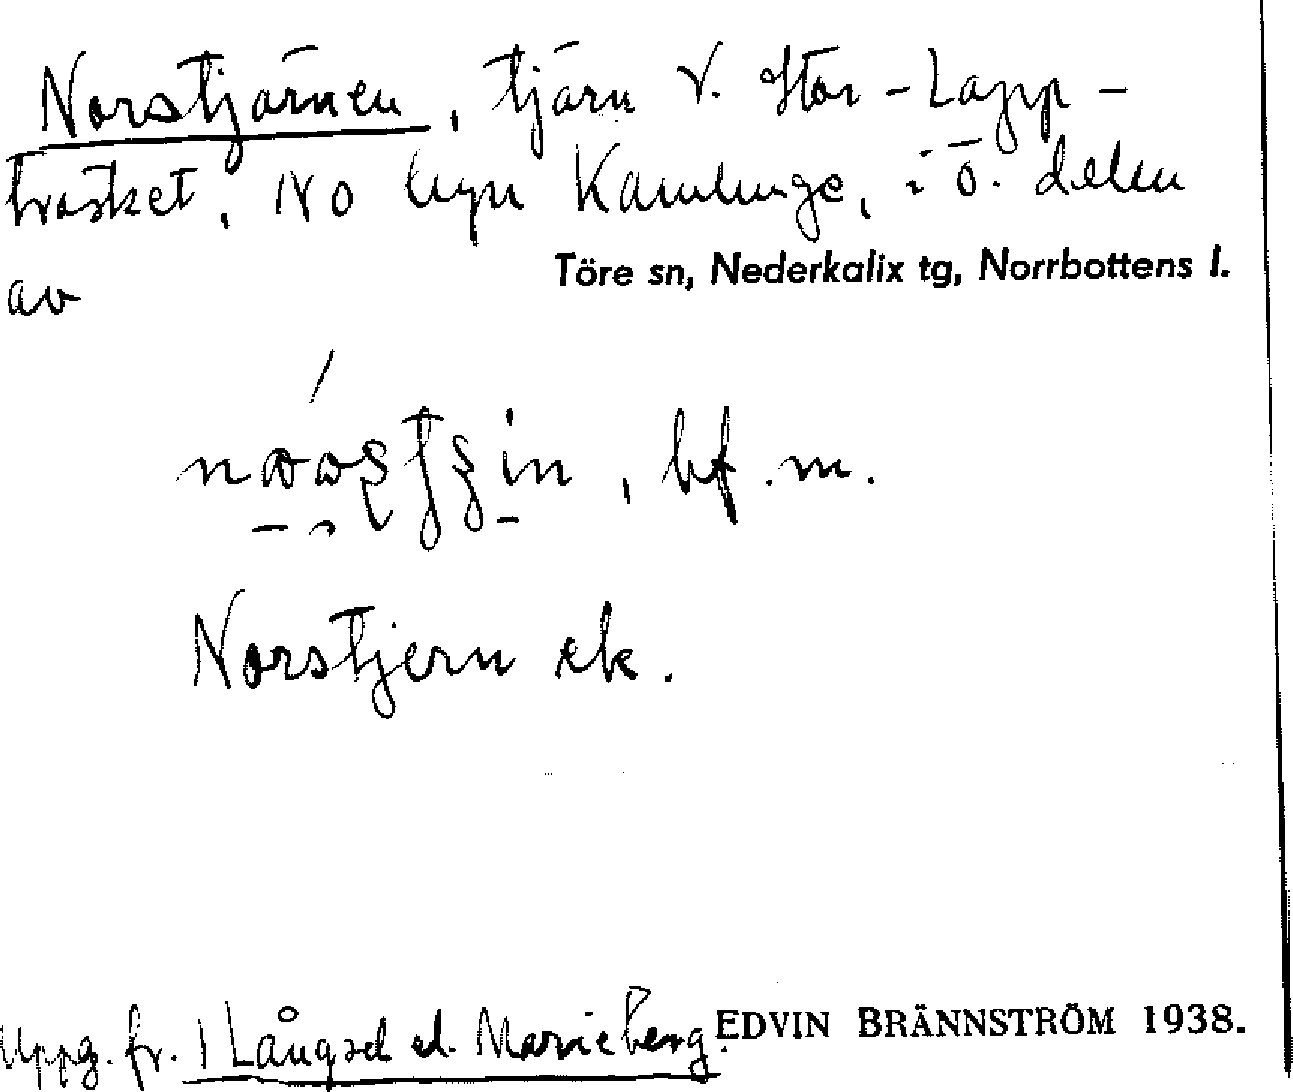 Norstjärnen, tjärn V. Stor-Lapp-
träsket, NO byn Kamlunge, i ö. delen
av Töre sn, Nederkalix tg, Norrbottens l.
bf. m.
Norstjern ek.
Uppg. fr. 1 Långsel el. Marieberg. EDVIN BRÄNNSTRÖM 1938.